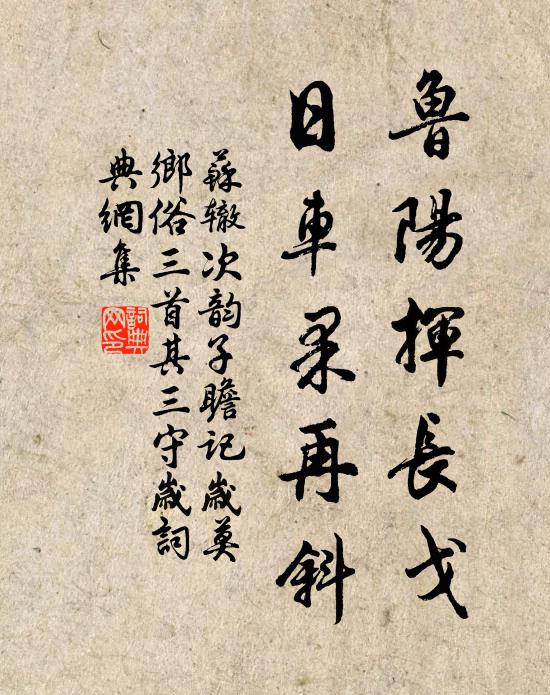 魯陽揮長戈
日車果再斜
蘇轍次韵子瞻記歲莫
鄉俗三首其三守歲詞
典網集
詞典網印